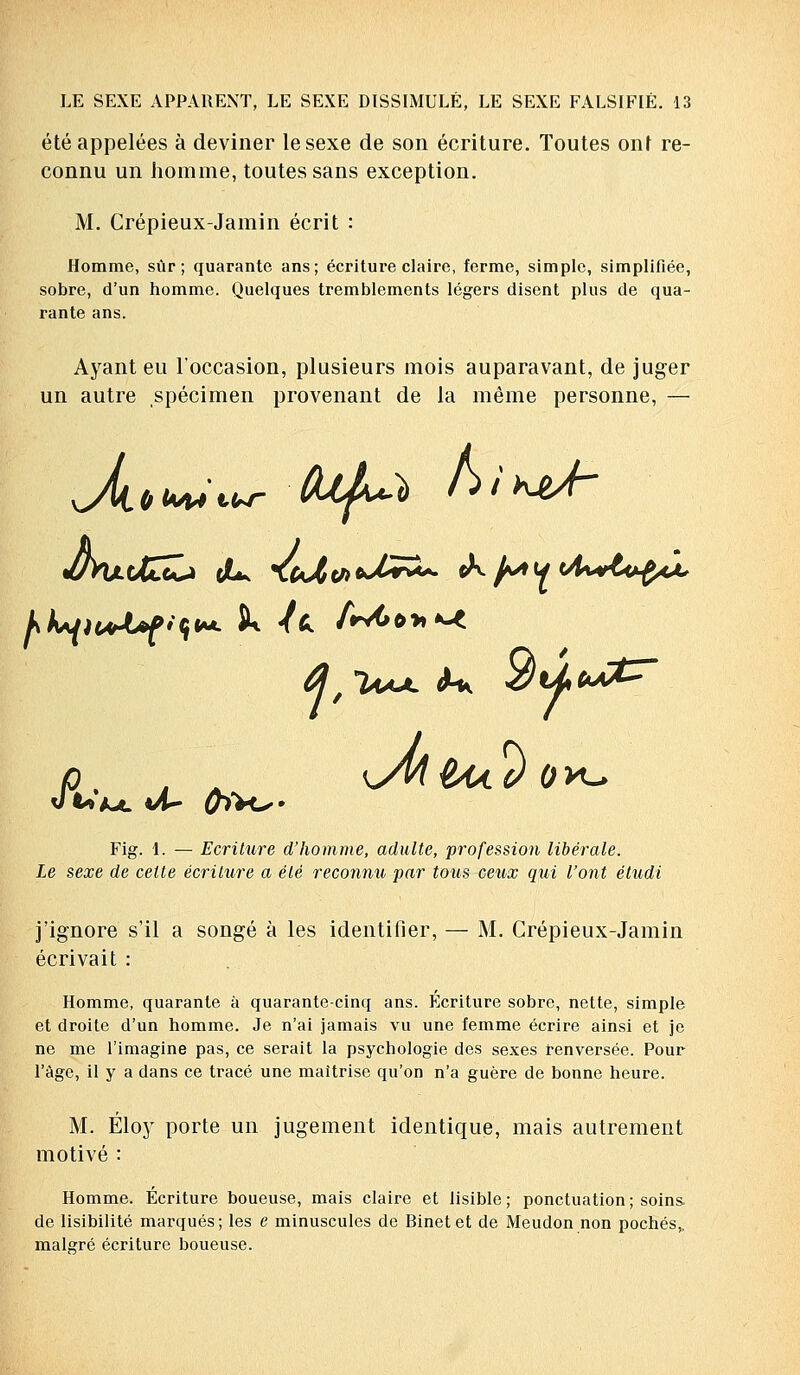 LE SEXE APPARENT, LE SEXE DISSIMULÉ, LE SEXE FALSIFIÉ. 13
été appelées à deviner le sexe de son écriture. Toutes ont re-
connu un homme, toutes sans exception.
M. Crépieux-Jamin écrit :
Homme, sûr ; quarante ans ; écriture claire, ferme, simple, simplifiée,
sobre, d'un homme. Quelques tremblements légers disent plus de qua-
rante ans.
Ayant eu l'occasion, plusieurs mois auparavant, de juger
un autre spécimen provenant de la même personne, —
Monsieur Alfred Binet
Directeur du Laboratoire de psychologie
physiologique de la Sorbonne
Meudon
Seine et Oise.
Fig. 1. — Ecriture d'homme, adulte, profession libérale.
Le sexe de cette écriture a été reconnu par tous ceux qui l'ont étudi
j'ignore s'il a songé à les identifier, — M. Crépieux-Jamin
écrivait :
Homme, quarante à quarante-cinq ans. Écriture sobre, nette, simple
et droite d'un homme. Je n'ai jamais vu une femme écrire ainsi et je
ne me l'imagine pas, ce serait la psychologie des sexes renversée. Pour
l'âge, il y a dans ce tracé une maîtrise qu'on n'a guère de bonne heure.
M. Éloy porte un jugement identique, mais autrement
motivé :
Homme. Écriture boueuse, mais claire et lisible ; ponctuation ; soins
de lisibilité marqués ; les e minuscules de Binet et de Meudon non pochés,
malgré écriture boueuse.